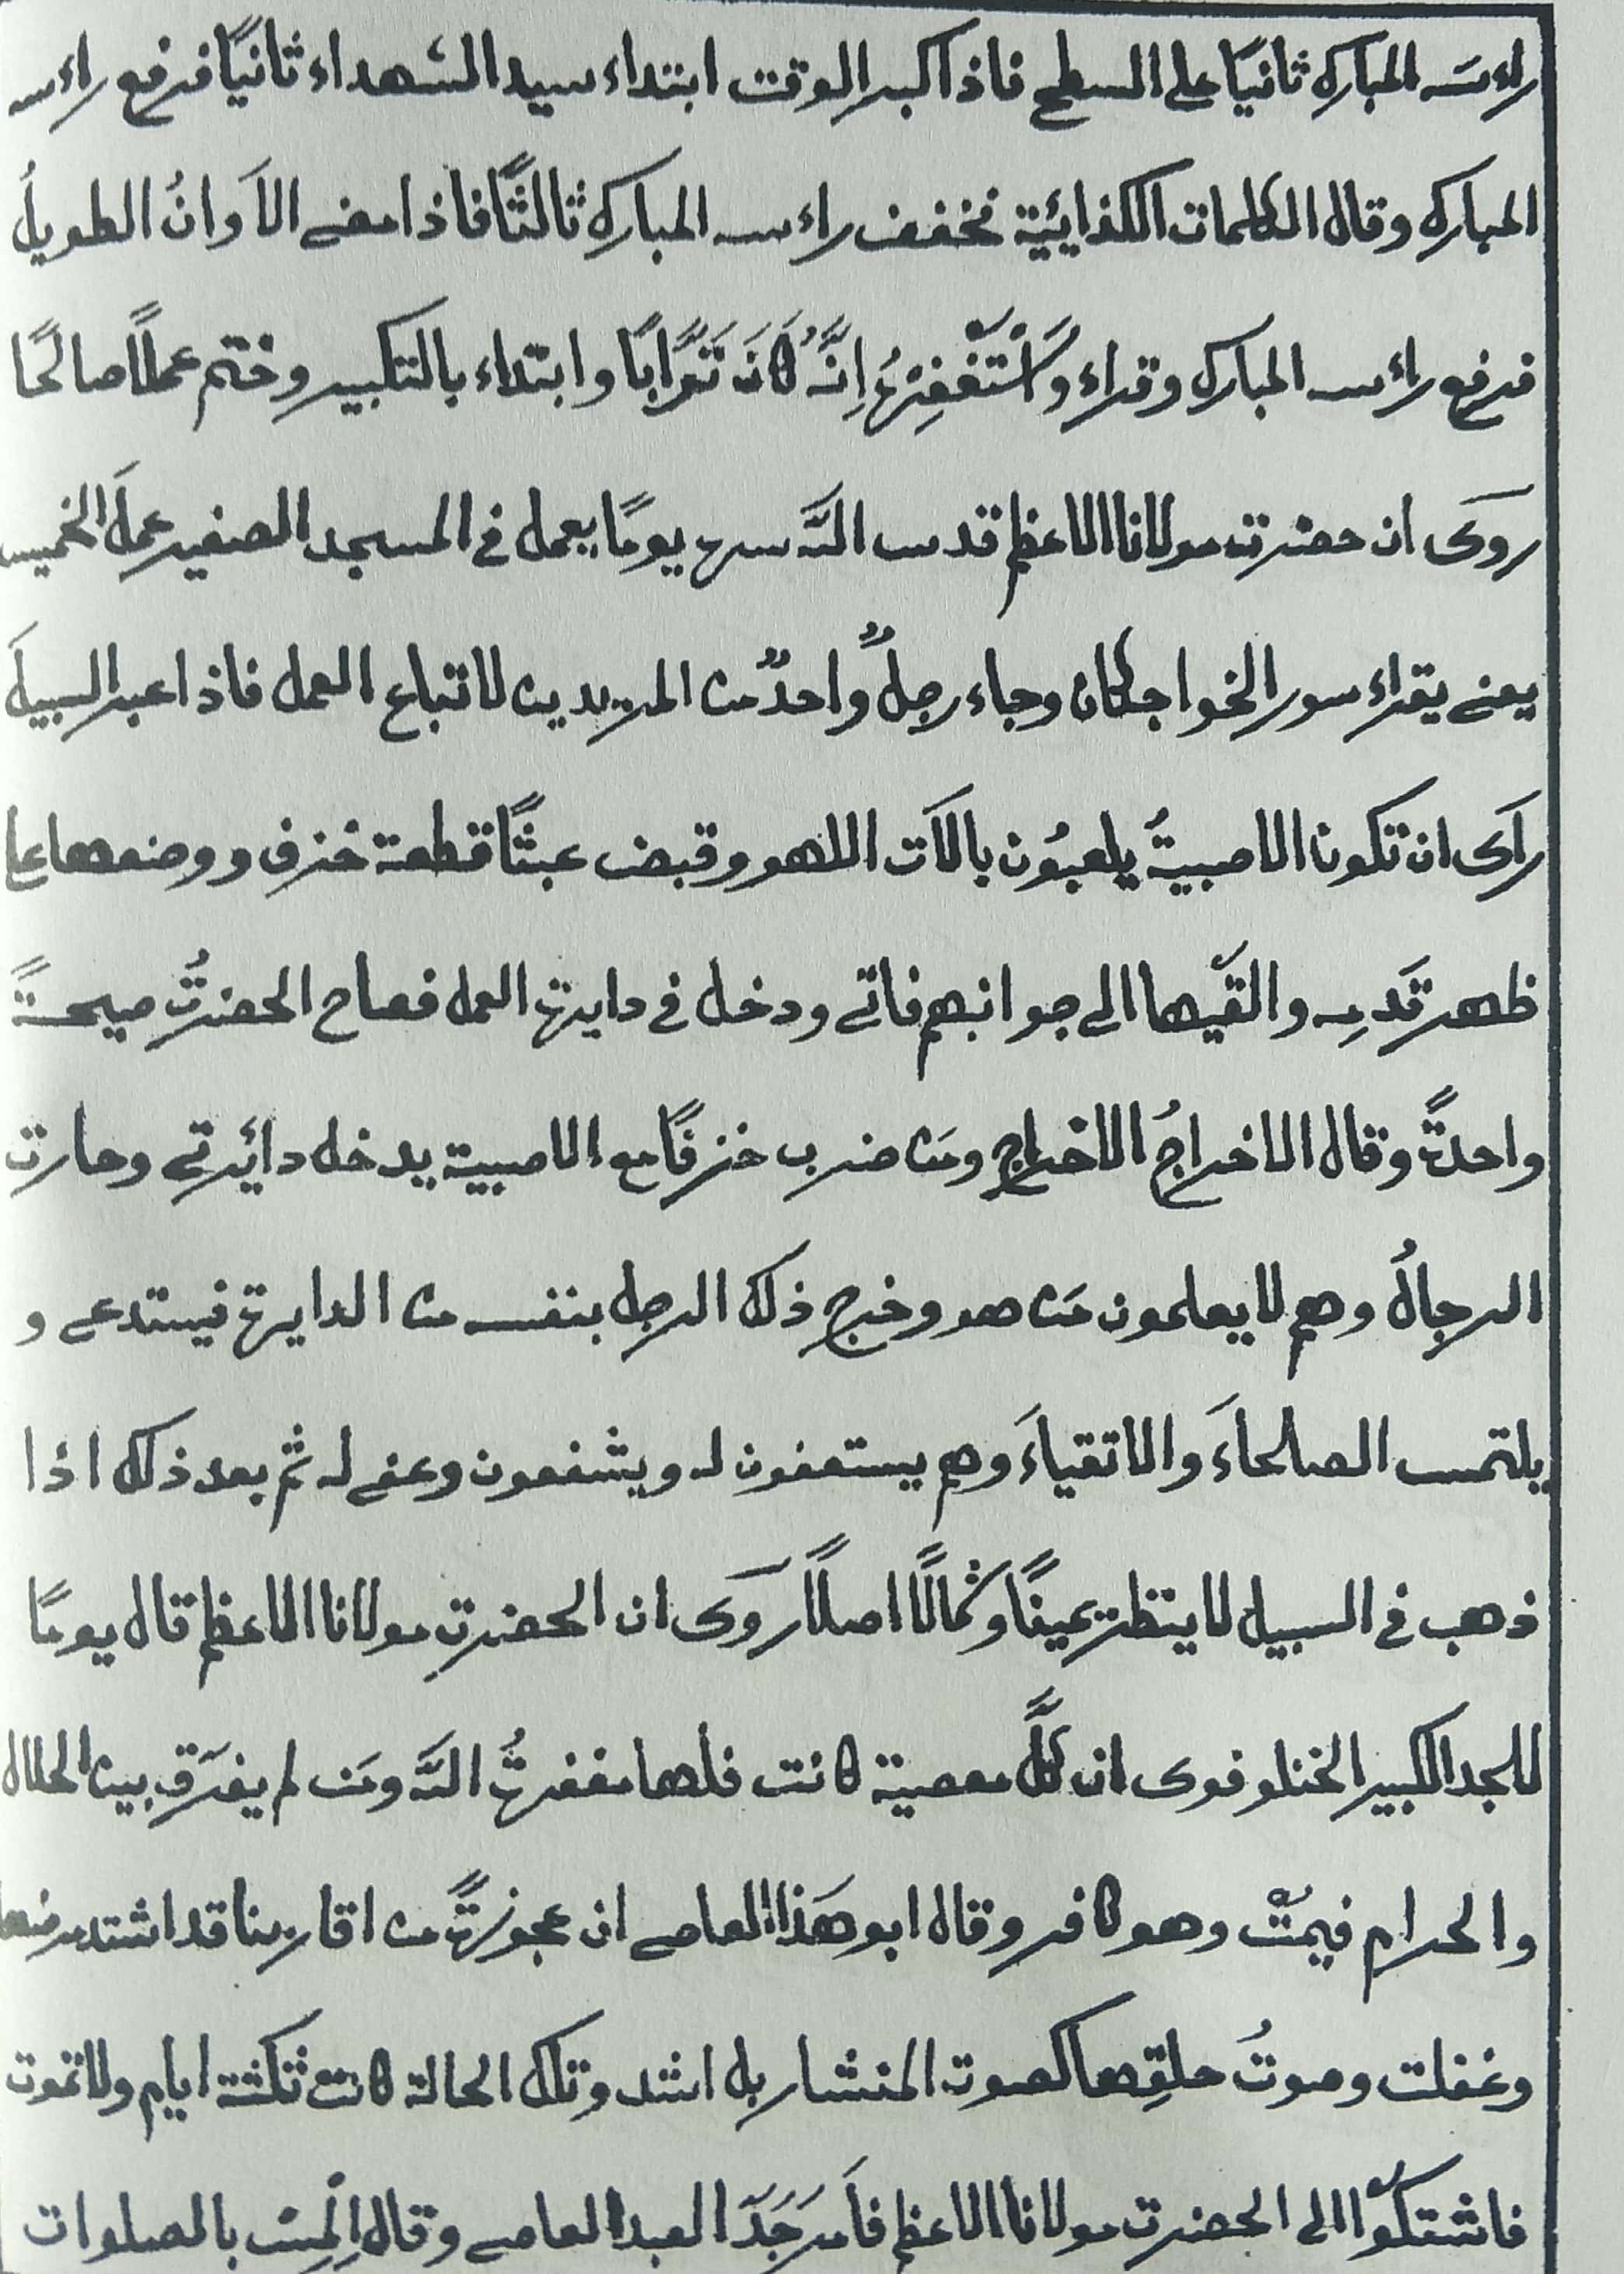 راءسَه المباركه ثانيًا على السطح فاذا كبر الوقت ابتداء سيد الشهداء ثانيًا فرفع راءسه
المباركه وقال الكلمات الكذايئية فخفف راءسه المباركه ثالثًا فاذا مضے الاَوانُ الطويلُ
فرفع راءسه المباركه وقراء وَاسْتَغْفِرْهُ اِنَّهُ كَانَ تَوَّابًا وابتداء بالتكبير وختم عملاً صالحًا
روَى ان حضرت مولانا الاعظم قدس اللَّه سره يومًا يعمل فے المسجد الصغير عملَ الخميس
يعنے يقراء سور الخواجكان وجاء رجلٌ واحدٌ من المريدين لاتباع العمل فاذا عبر السبيلَ
راَى ان تكونا الاصبيةُ يلعبُون بالاَت اللهو وقبض عبثًا قطعة خزف و وضعها علے
ظهر قَدَمِه والقَيها الى جوانبهم فاتے ودخل فے دايرة العمل فصاح الحضرتُ صيحةً
واحدةً وقال الاخراجُ الاخراج ومَن ضرب خزفًا مع الاصبية يدخل دائرتے وحارت
الرجالُ وهم لايعلمون مَن هو وخرج ذلك الرجل بنفسه من الدايرة فيستدعے و
يلتمس الصلحاءَ والاتقياءَ وهم يستعفون له ويشفعون وعفے له ثم بعد ذلك اذا
ذهب فے السبيل لاينظر يمينًا وشمالاً اصلاً روَى ان الحضرت مولانا الاعظم قال يومًا
للجد الكبير الخنلوفوى ان كلَّ معصية كانت فلها مغفرةُ اللَّه ومَن لم يفرّق بين الحلال
والحرام فيمُتْ وهو كافر وقال ابو هَذا العاصے ان عجوزةً من اقاربنا قد اشتد مرضها
وغفلت وصوتُ حلقِها كصوت المنشار بل اشد وتلك الحالة كانت ثلثة ايام ولاتموت
فاشتكَوْا الى الحضرت مولانا الاعظم فاَمر جَدَّ العبد العاصے وقال بالصلوات